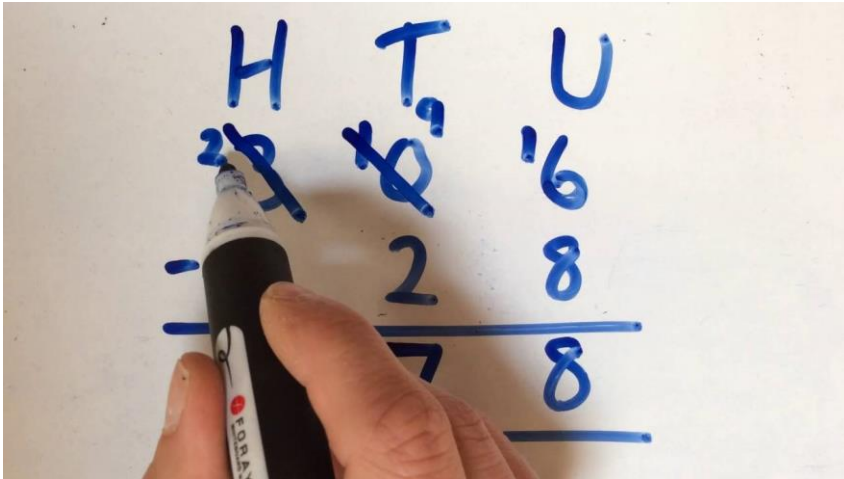 H T U
9
2 1 0 1 6
- 2 8
7 8
FORAY